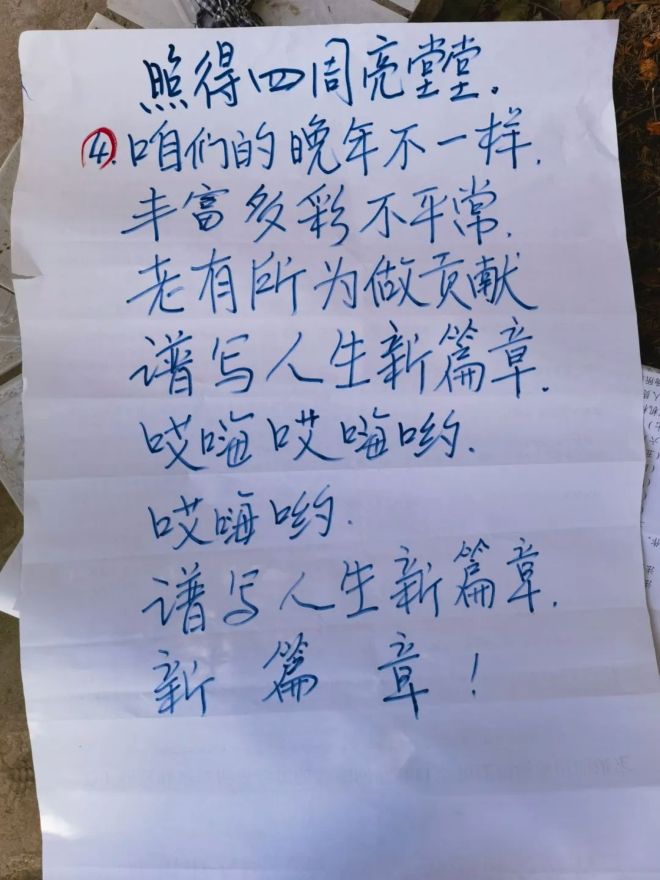 照得四周亮堂堂。
④.咱们的晚年不一样.
丰富多彩不平常.
老有所为做贡献
谱写人生新篇章.
哎嗨哎嗨哟.
哎嗨哟.
谱写人生新篇章.
新篇章！